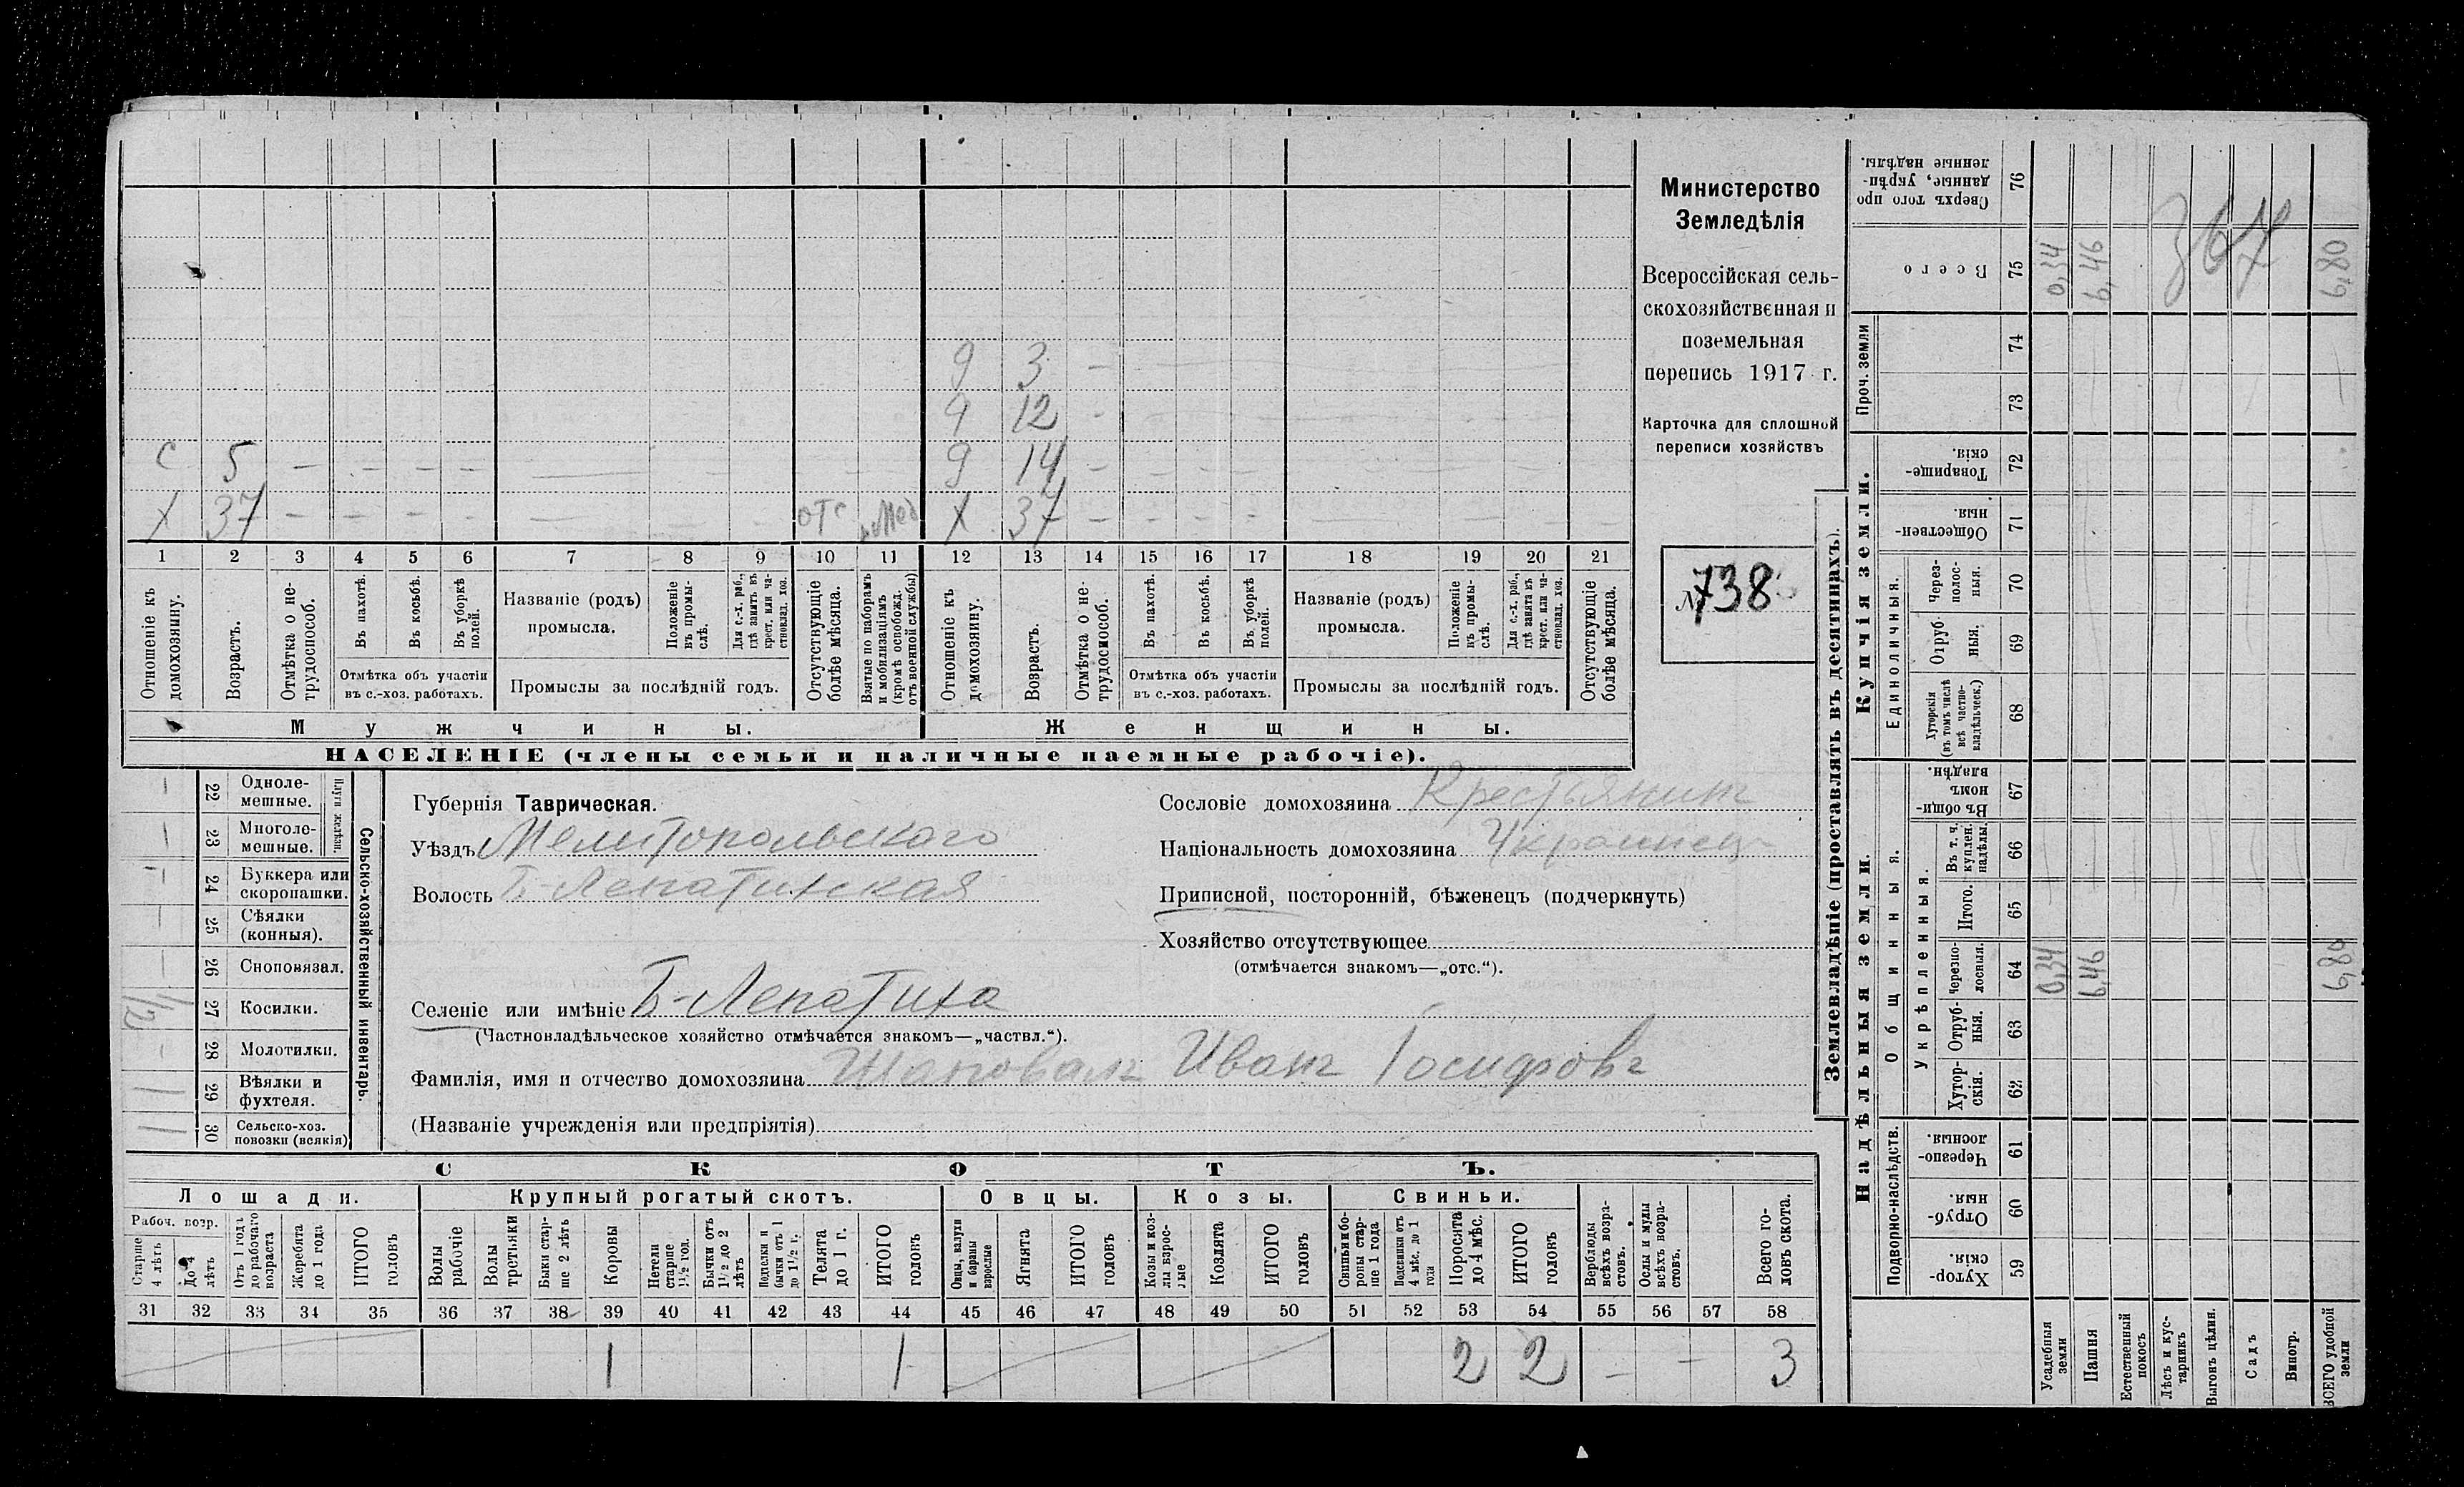 с 5 — — — — — — —
х 37 — — — — — — — отс моб
д 3 —
д 12 —
д 14 — — — —
х 37 — — — — — — — —
1 2 3 4 5 6 7 8 9 10 11 12 13 14 15 16 17 18 19 20 21
Отношеніе къ домохозяину.
Возрастъ.
Отмѣтка о не-
трудоспособ.
Въ пахотѣ.
Въ косьбѣ.
Въ уборкѣ полей.
Отмѣтка объ участіи
въ с.-хоз. работахъ.
Названіе (родъ)
промысла.
Положеніе въ промы-
слѣ.
Для с.-х. раб., гдѣ занятъ въ крест. или ча-
стновлад. хоз.
Промыслы за послѣдній годъ.
Отсутствующіе болѣе мѣсяца.
Взятые по наборамъ и мобилизаціямъ (кромѣ освобожд. отъ военной службы)
Отношеніе къ домохозяину.
Возрастъ.
Отмѣтка о не-
трудоспособ.
Въ пахотѣ.
Въ косьбѣ.
Въ уборкѣ полей.
Отмѣтка объ участіи
въ с.-хоз. работахъ.
Названіе (родъ)
промысла.
Положеніе въ промы-
слѣ.
Для с.-х. раб., гдѣ занята въ крест. или ча-
стновлад. хоз.
Промыслы за послѣдній годъ.
Отсутствующіе болѣе мѣсяца.
Мужчины.
Женщины.
НАСЕЛЕНІЕ (члены семьи и наличные наемные рабочіе).
Министерство
Земледѣлія
Всероссійская сель-
скохозяйственная и
поземельная
перепись 1917 г.
Карточка для сплошной
переписи хозяйствъ
№ 738
Сельско-хозяйственный инвентарь.
Плуги желѣзн.
22 Одноле-
мешные.
23 Многоле-
мешные.
24 Буккера или
скоропашки.
25 Сѣялки
(конныя).
26 Сноповязал.
27 Косилки. 1/2
28 Молотилки.
29 Вѣялки и
фухтеля. 1
30 Сельско-хоз.
повозки (всякія) 1
Губернія Таврическая.
Уѣздъ Мелитопольскаго
Волость Б-Лепатихская
Селеніе или имѣніе Б-Лепатиха
(Частновладѣльческое хозяйство отмѣчается знакомъ—„частвл.“).
Фамилія, имя и отчество домохозяина Шаповалъ Иванъ Іосифовъ
(Названіе учрежденія или предпріятія)
Сословіе домохозяина Крестьянинъ
Національность домохозяина Украинецъ
Приписной, посторонній, бѣженецъ (подчеркнуть)
Хозяйство отсутствующее
(отмѣчается знакомъ—„отс.“).
СКОТЪ.
Лошади.
Крупный рогатый скотъ.
Овцы.
Козы.
Свиньи.
Рабоч. возр.
Старше 4 лѣтъ
До 4 лѣтъ
Отъ 1 года до рабочаго возраста
Жеребята до 1 года
ИТОГО головъ
Волы рабочіе
Волы третьяки
Быки стар-
ше 2 лѣтъ
Коровы
Нетели старше 1½ год.
Бычки отъ 1½ до 2 лѣтъ
Подтелки и бычки отъ 1 до 1½ г.
Телята до 1 г.
ИТОГО головъ
Овцы, валухи и бараны взрослые
Ягнята
ИТОГО головъ
Козы и коз-
лы взрос-
лые
Козлята
ИТОГО головъ
Свиньи и бо-
ровы стар-
ше 1 года
Подсвинки отъ 4 мѣс. до 1 года
Поросята до 4 мѣс.
ИТОГО головъ
Верблюды всѣхъ возра-
стовъ.
Ослы и мулы всѣхъ возра-
стовъ.
Всего го-
ловъ скота.
31 32 33 34 35 36 37 38 39 40 41 42 43 44 45 46 47 48 49 50 51 52 53 54 55 56 57 58
1 1 2 2 — — 3
Землевладѣніе (проставлять въ десятинахъ).
Надѣльныя земли.
Купчія земли.
Проч. земли
Подворно-наслѣдств.
Общинныя.
Укрѣпленныя.
Единоличныя.
Сверхъ того про
данные, укрѣп-
ленные надѣлы. 76
Всего 75 0,34 6,46 6,80
367
74
73
Товарище-
скія. 72
Обществен-
ныя. 71
Через-
полос-
ныя. 70
Отруб
ныя. 69
Хуторскія
(въ томъ числѣ
всѣ частно-
владѣльческ.) 68
Въ общин-
номъ
владѣн. 67
Въ т. ч.
куплен.
надѣлы. 66
Итого. 65
Черезпо-
лосныя. 64 0,34 6,46 6,80
Отруб-
ныя. 63
Хутор-
скія. 62
Черезпо-
лосныя. 61
Отруб-
ныя. 60
Хутор-
скія. 59
Усадебныя земли
Пашня
Естественный покосъ
Лѣсъ и кус-
тарникъ
Выгонъ цѣлин.
Садъ
Виногр.
ВСЕГО удобной земли